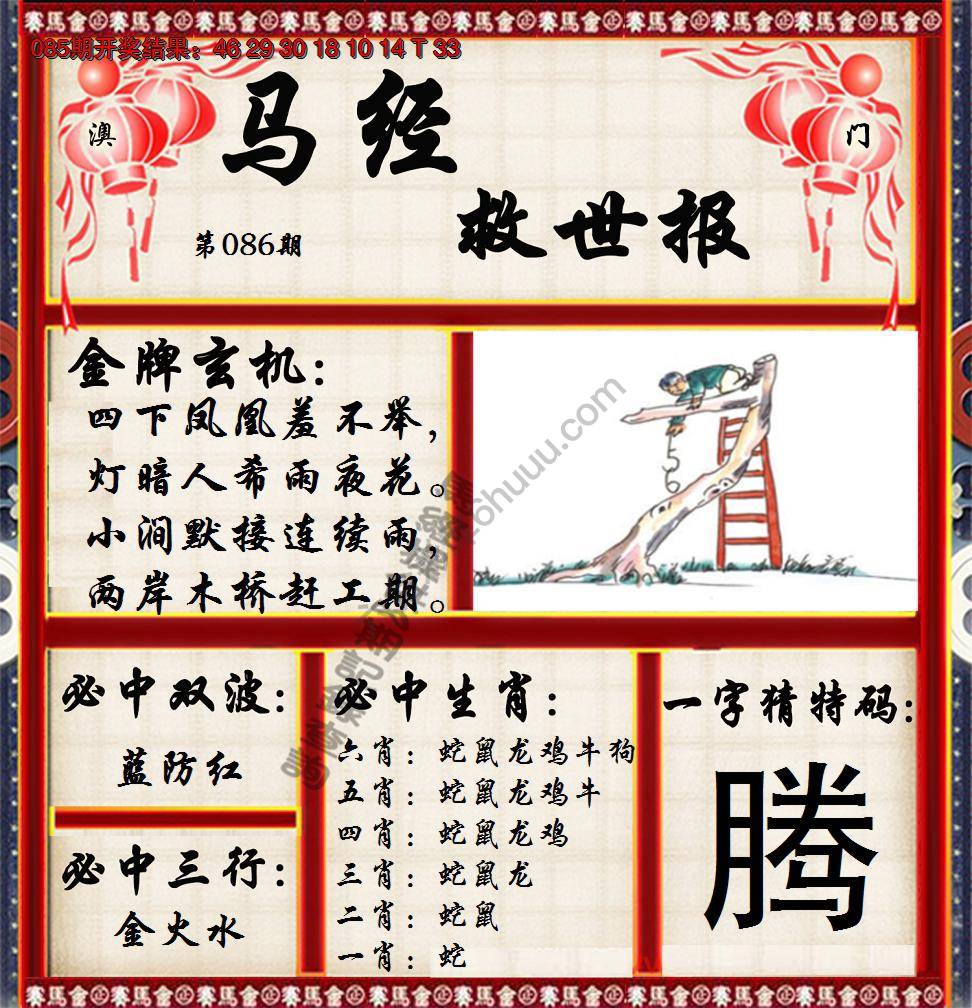 赛馬會
085期开奖结果：46 29 30 18 10 14 T 33
澳
门
马经
救世报
第086期
金牌玄机：
四下凤凰羞不举，
灯暗人希雨夜花。
小涧默接连续雨，
两岸木桥赶工期。
必中双波：
蓝防红
必中三行：
金火水
必中生肖：
六肖：蛇鼠龙鸡牛狗
五肖：蛇鼠龙鸡牛
四肖：蛇鼠龙鸡
三肖：蛇鼠龙
二肖：蛇鼠
一肖：蛇
一字猜特码：
腾